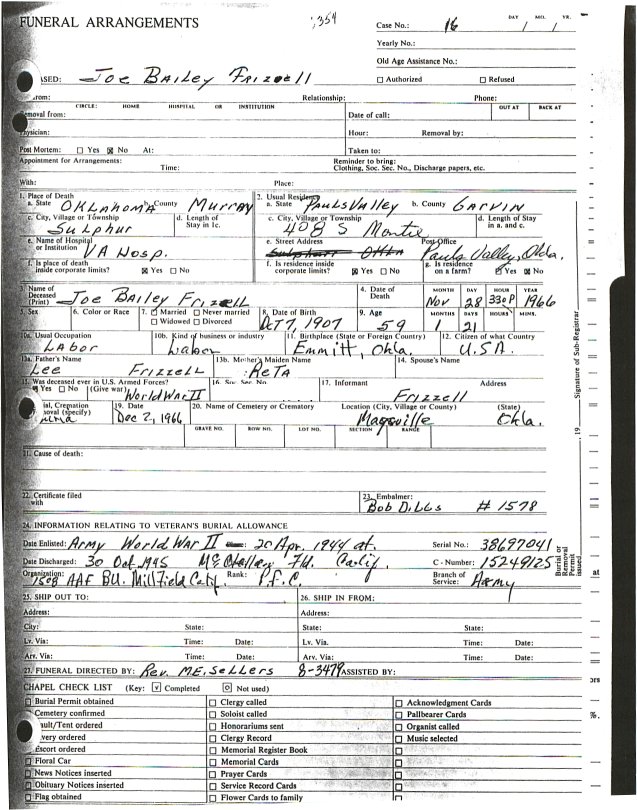 FUNERAL ARRANGEMENTS
1354
Case No.: 16 DAY / MO. / YR.
Yearly No.:
Old Age Assistance No.:
ASED: Joe Bailey Frizzell
☐ Authorized ☐ Refused
rom: Relationship: Phone:
CIRCLE: HOME HOSPITAL OR INSTITUTION OUT AT BACK AT
emoval from: Date of call:
hysician: Hour: Removal by:
Post Mortem: ☐ Yes ☒ No At: Taken to:
Appointment for Arrangements: Time: Reminder to bring:
Clothing, Soc. Sec. No., Discharge papers, etc.
With: Place:
1. Place of Death
a. State OKLAHOMA b. County MURRAY
c. City, Village or Township Sulphur
d. Length of Stay in 1c.
e. Name of Hospital or Institution VA Hosp.
f. Is place of death inside corporate limits? ☒ Yes ☐ No
2. Usual Residence
a. State Pauls Valley b. County GARVIN
c. City, Village or Township 408 S
d. Length of Stay in a. and c.
e. Street Address
Post Office Pauls Valley, Okla.
f. Is residence inside corporate limits? ☒ Yes ☐ No
g. Is residence on a farm? ☐ Yes ☒ No
3. Name of Deceased (Print) Joe Bailey Frizzell
4. Date of Death MONTH DAY HOUR YEAR
Nov 28 330P 1966
5. Sex 6. Color or Race 7. ☒ Married ☐ Never married
☐ Widowed ☐ Divorced
8. Date of Birth Oct 7, 1907
9. Age 59 MONTHS DAYS HOURS MINS.
1 21
10a. Usual Occupation Labor
10b. Kind of business or industry Labor
11. Birthplace (State or Foreign Country) Emmitt, Okla.
12. Citizen of what Country U.S.A.
13a. Father's Name Lee Frizzell
13b. Mother's Maiden Name Reta
14. Spouse's Name
15. Was deceased ever in U.S. Armed Forces?
Yes ☐ No (Give war) World War II
16. Soc. Sec. No.
17. Informant Frizzell Address
ial, Cremation
oval (specify)
19. Date Dec 2, 1966
20. Name of Cemetery or Crematory Location (City, Village or County) (State)
Maysville Okla.
GRAVE NO. ROW NO. LOT NO. SECTION RANGE
21. Cause of death:
22. Certificate filed with
23. Embalmer: Bob Dilbs #1578
24. INFORMATION RELATING TO VETERAN'S BURIAL ALLOWANCE
Date Enlisted: Army World War II 20 Apr. 1944 at. Serial No.: 38697041
Date Discharged: 30 Oct 1945 Fld. Calif. C - Number: 15249125
Organization: 1508 AAF BU. Millfield Calif. Rank: P.f.C. Branch of Service: Army
25. SHIP OUT TO: 26. SHIP IN FROM:
Address: Address:
City: State: State: State:
Lv. Via: Time: Date: Lv. Via. Time: Date:
Arv. Via: Time: Date: Arv. Via: Time: Date:
27. FUNERAL DIRECTED BY: Rev. M.E. Sellers 8-3479 ASSISTED BY:
CHAPEL CHECK LIST (Key: ☑ Completed ⊡ Not used)
Burial Permit obtained ☐ Clergy called ☐ Acknowledgment Cards
Cemetery confirmed ☐ Soloist called ☐ Pallbearer Cards
ault/Tent ordered ☐ Honorariums sent ☐ Organist called
very ordered ☐ Clergy Record ☐ Music selected
Escort ordered ☐ Memorial Register Book ☐
☐ Floral Car ☐ Memorial Cards ☐
☐ News Notices inserted ☐ Prayer Cards ☐
☐ Obituary Notices inserted ☐ Service Record Cards ☐
☐ Flag obtained ☐ Flower Cards to family ☐
19 Signature of Sub-Registrar
Burial or Removal Permit issued
at
ors
%.